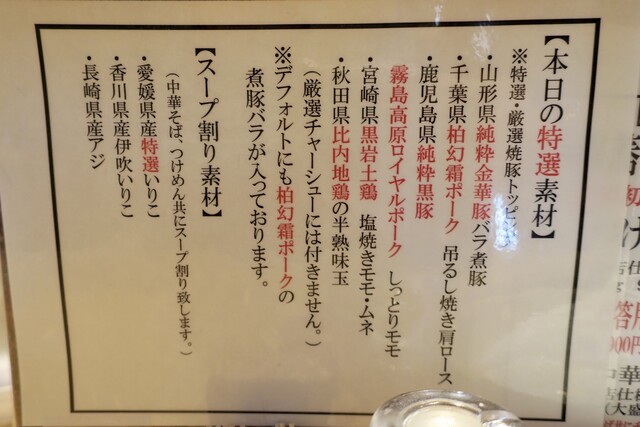 【本日の特選素材】
※特選・厳選焼豚トッピン
・山形県純粋金華豚バラ煮豚
・千葉県柏幻霜ポーク 吊るし焼き肩ロース
・鹿児島県純粋黒豚
霧島高原ロイヤルポーク しっとりモモ
・宮崎県黒岩土鶏 塩焼きモモ・ムネ
・秋田県比内地鶏の半熟味玉
(厳選チャーシューには付きません。)
※デフォルトにも柏幻霜ポークの
煮豚バラが入っております。
【スープ割り素材】
(中華そば、つけめん共にスープ割り致します。)
・愛媛県産特選いりこ
・香川県産伊吹いりこ
・長崎県産アジ